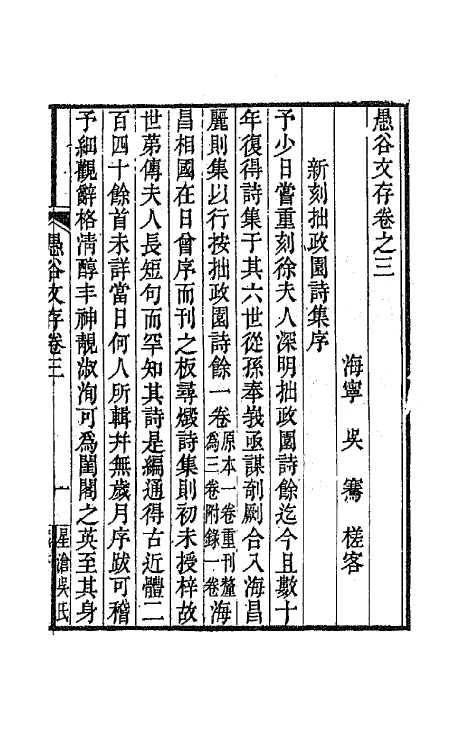 愚谷文存卷之三
海寧 吳 騫 槎客
新刻拙政園詩集序
予少日嘗重刻徐夫人深明拙政園詩餘迄今且數十
年復得詩集于其六世從孫奉峩亟謀剞劂合入海昌
麗則集以行按拙政園詩餘一卷原本一卷重刊釐為三卷附錄一卷海
昌相國在日曾序而刊之板尋燬詩集則初未授梓故
世弟傳夫人長短句而罕知其詩是編通得古近體二
百四十餘首未詳當日何人所輯幷無歲月序跋可稽
予細觀辭格清醇丰神靚淑洵可為閨閣之英至其身
愚谷文存卷三 一 星滄吳氏